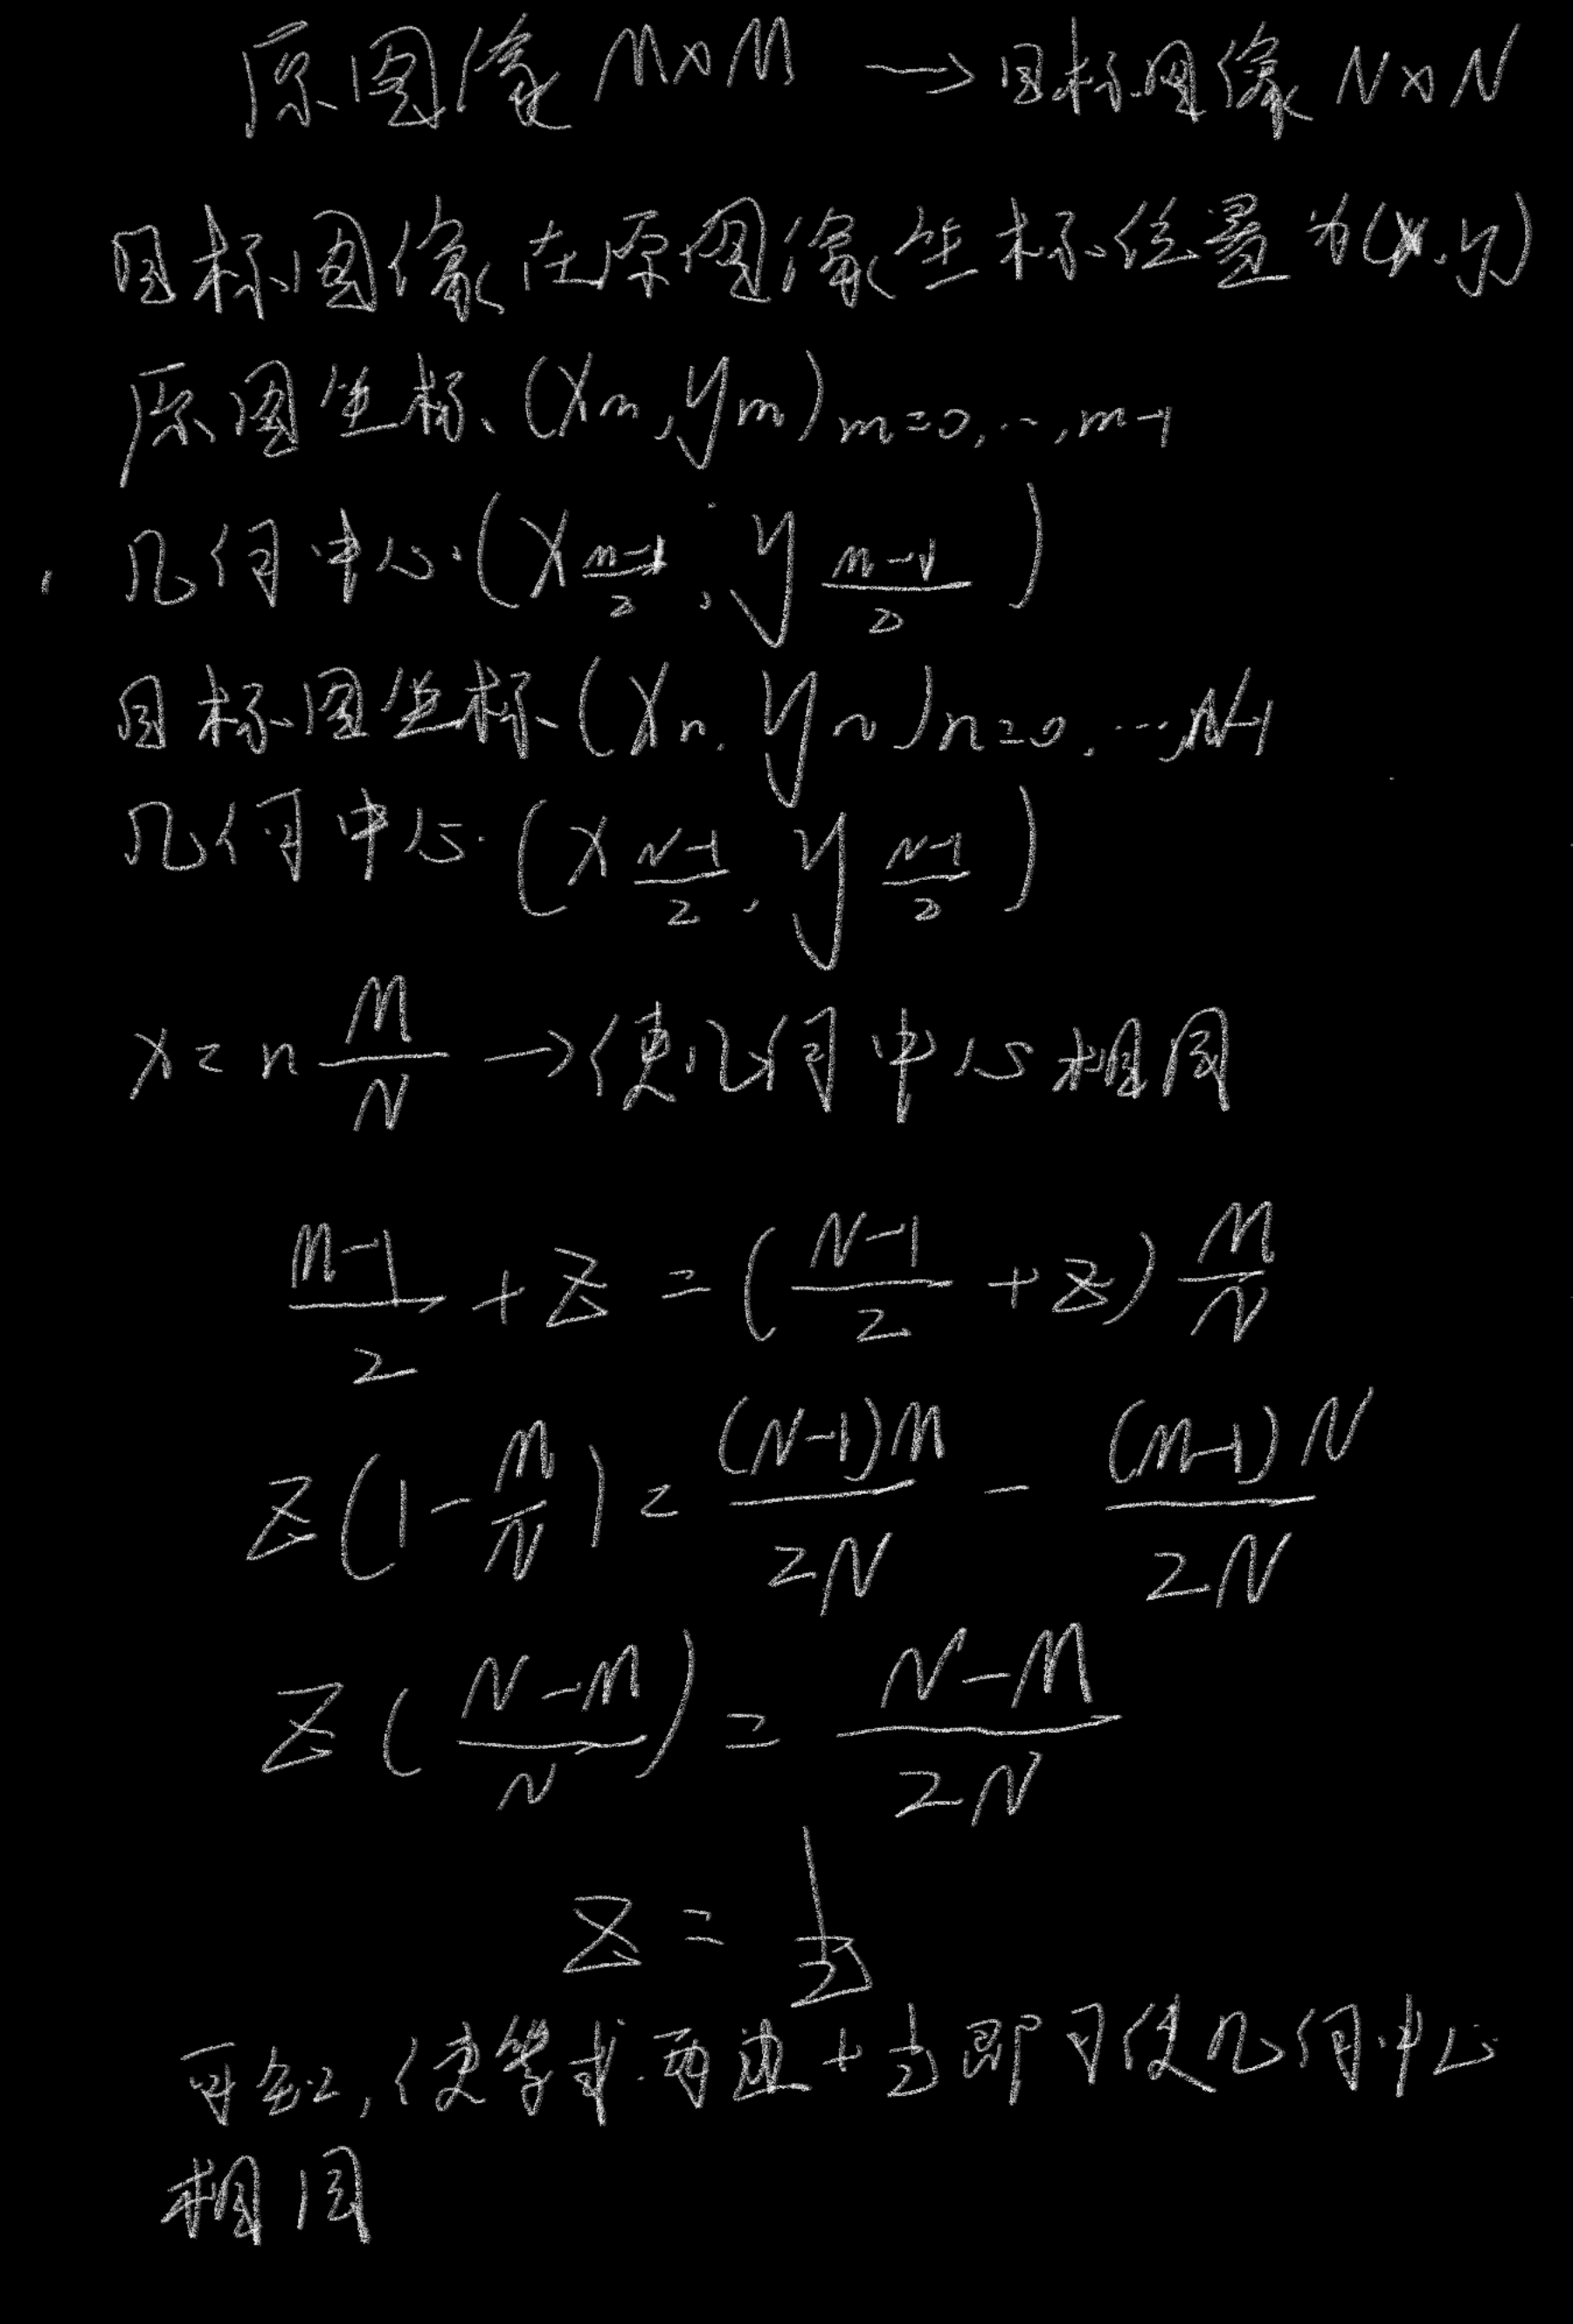 原图像 M×M → 目标图像 N×N
目标图像在原图像坐标位置为(x,y)
原图坐标、(Xm,ym)m=0,…,m-1
几何中心:(X(m-1)/2, y(m-1)/2)
目标图坐标(Xn,yn)n=0,…,N-1
几何中心:(x(N-1)/2, y(N-1)/2)
x=n M/N →使几何中心相同
(M-1)/2+Z=((N-1)/2+Z) M/N
Z(1-M/N)=(N-1)M/2N-(M-1)N/2N
Z((N-M)/N)=(N-M)/2N
Z=1/2
,使等式两边+1/2即可使几何中心
相同